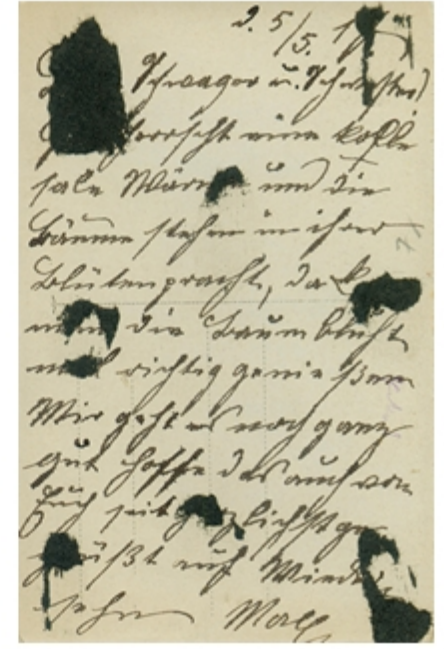 5/5.
Schwager u. Schwester!
herrscht eine kollo
sale Wärme und die
Bäume stehen in ihrer
Blütenpracht, da
die Baumblüht
richtig genießen
Mir geht es noch ganz
gut hoffe das auch von
Euch seit herzlichst ge
grüßt auf Wieder
sehn